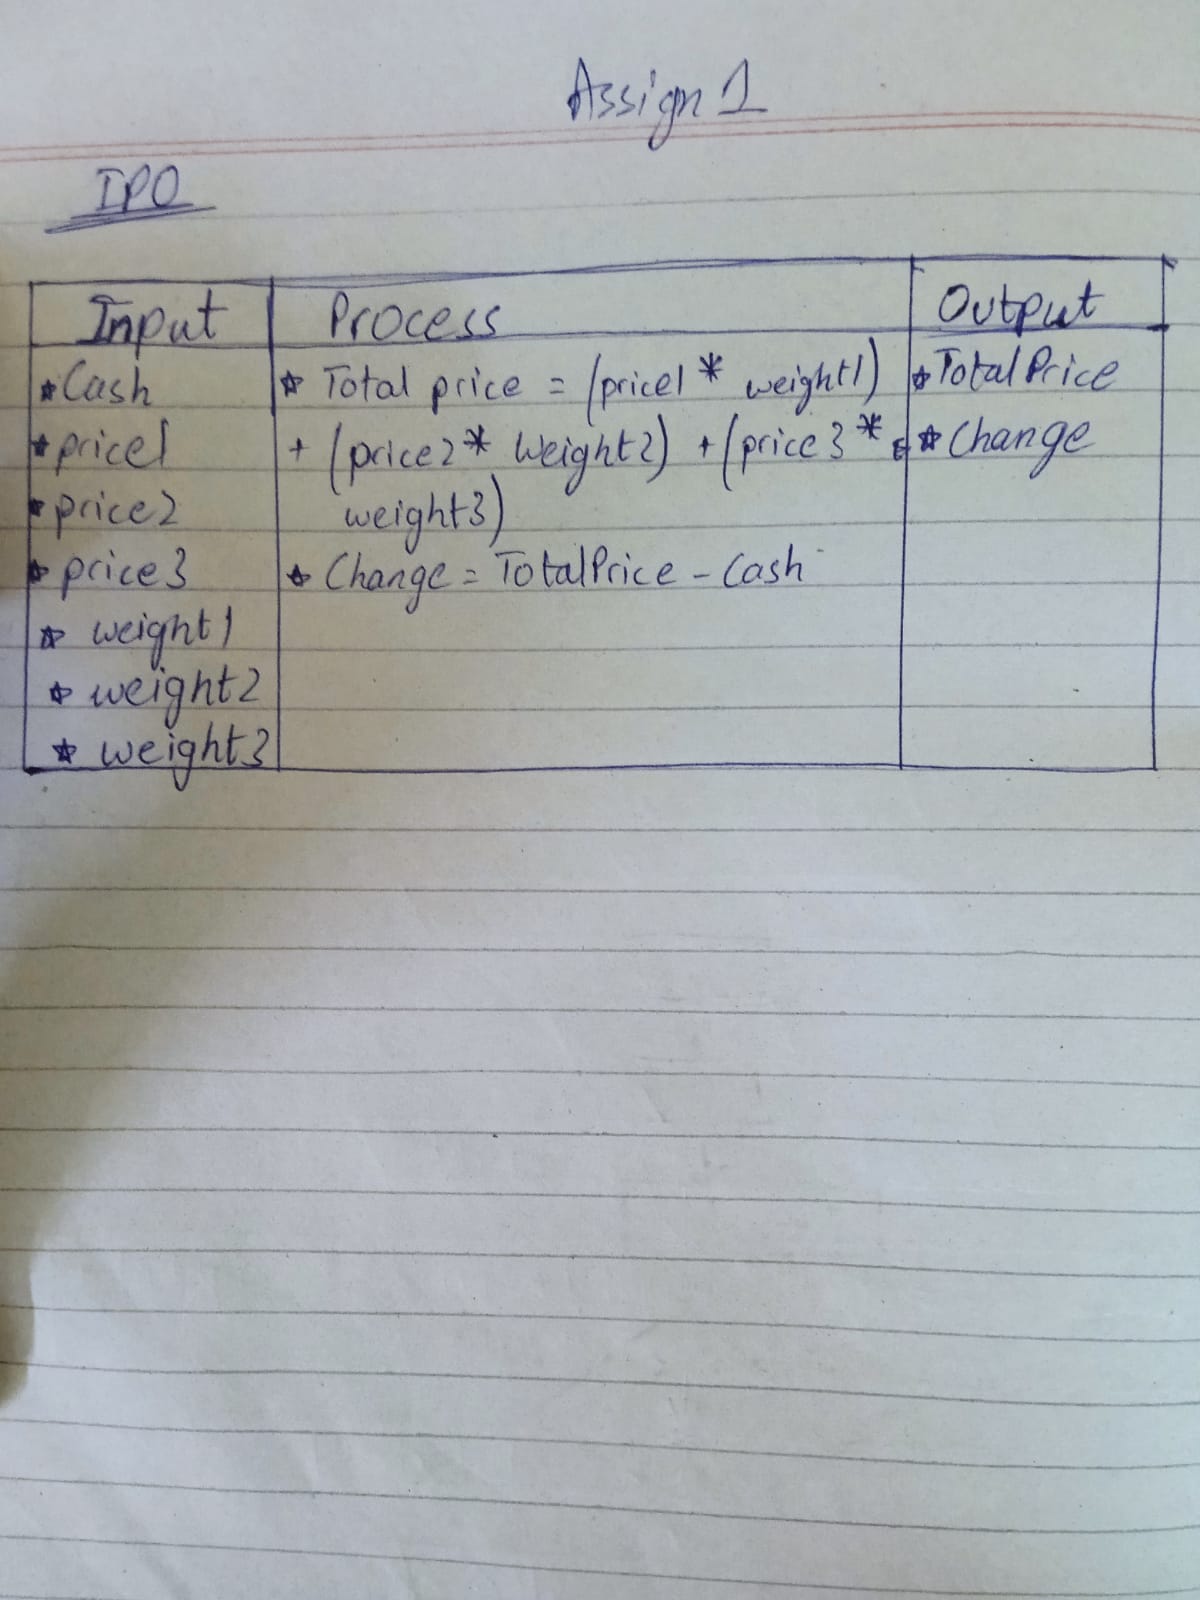 Assign 1
IPO
Input Process Output
* Cash
* price1
* price2
* price3
* weight1
* weight2
* weight3
* Total price = (price1 * weight1)
+ (price2 * Weight2) + (price3 *
weight3)
* Change = TotalPrice - Cash
* TotalPrice
* Change